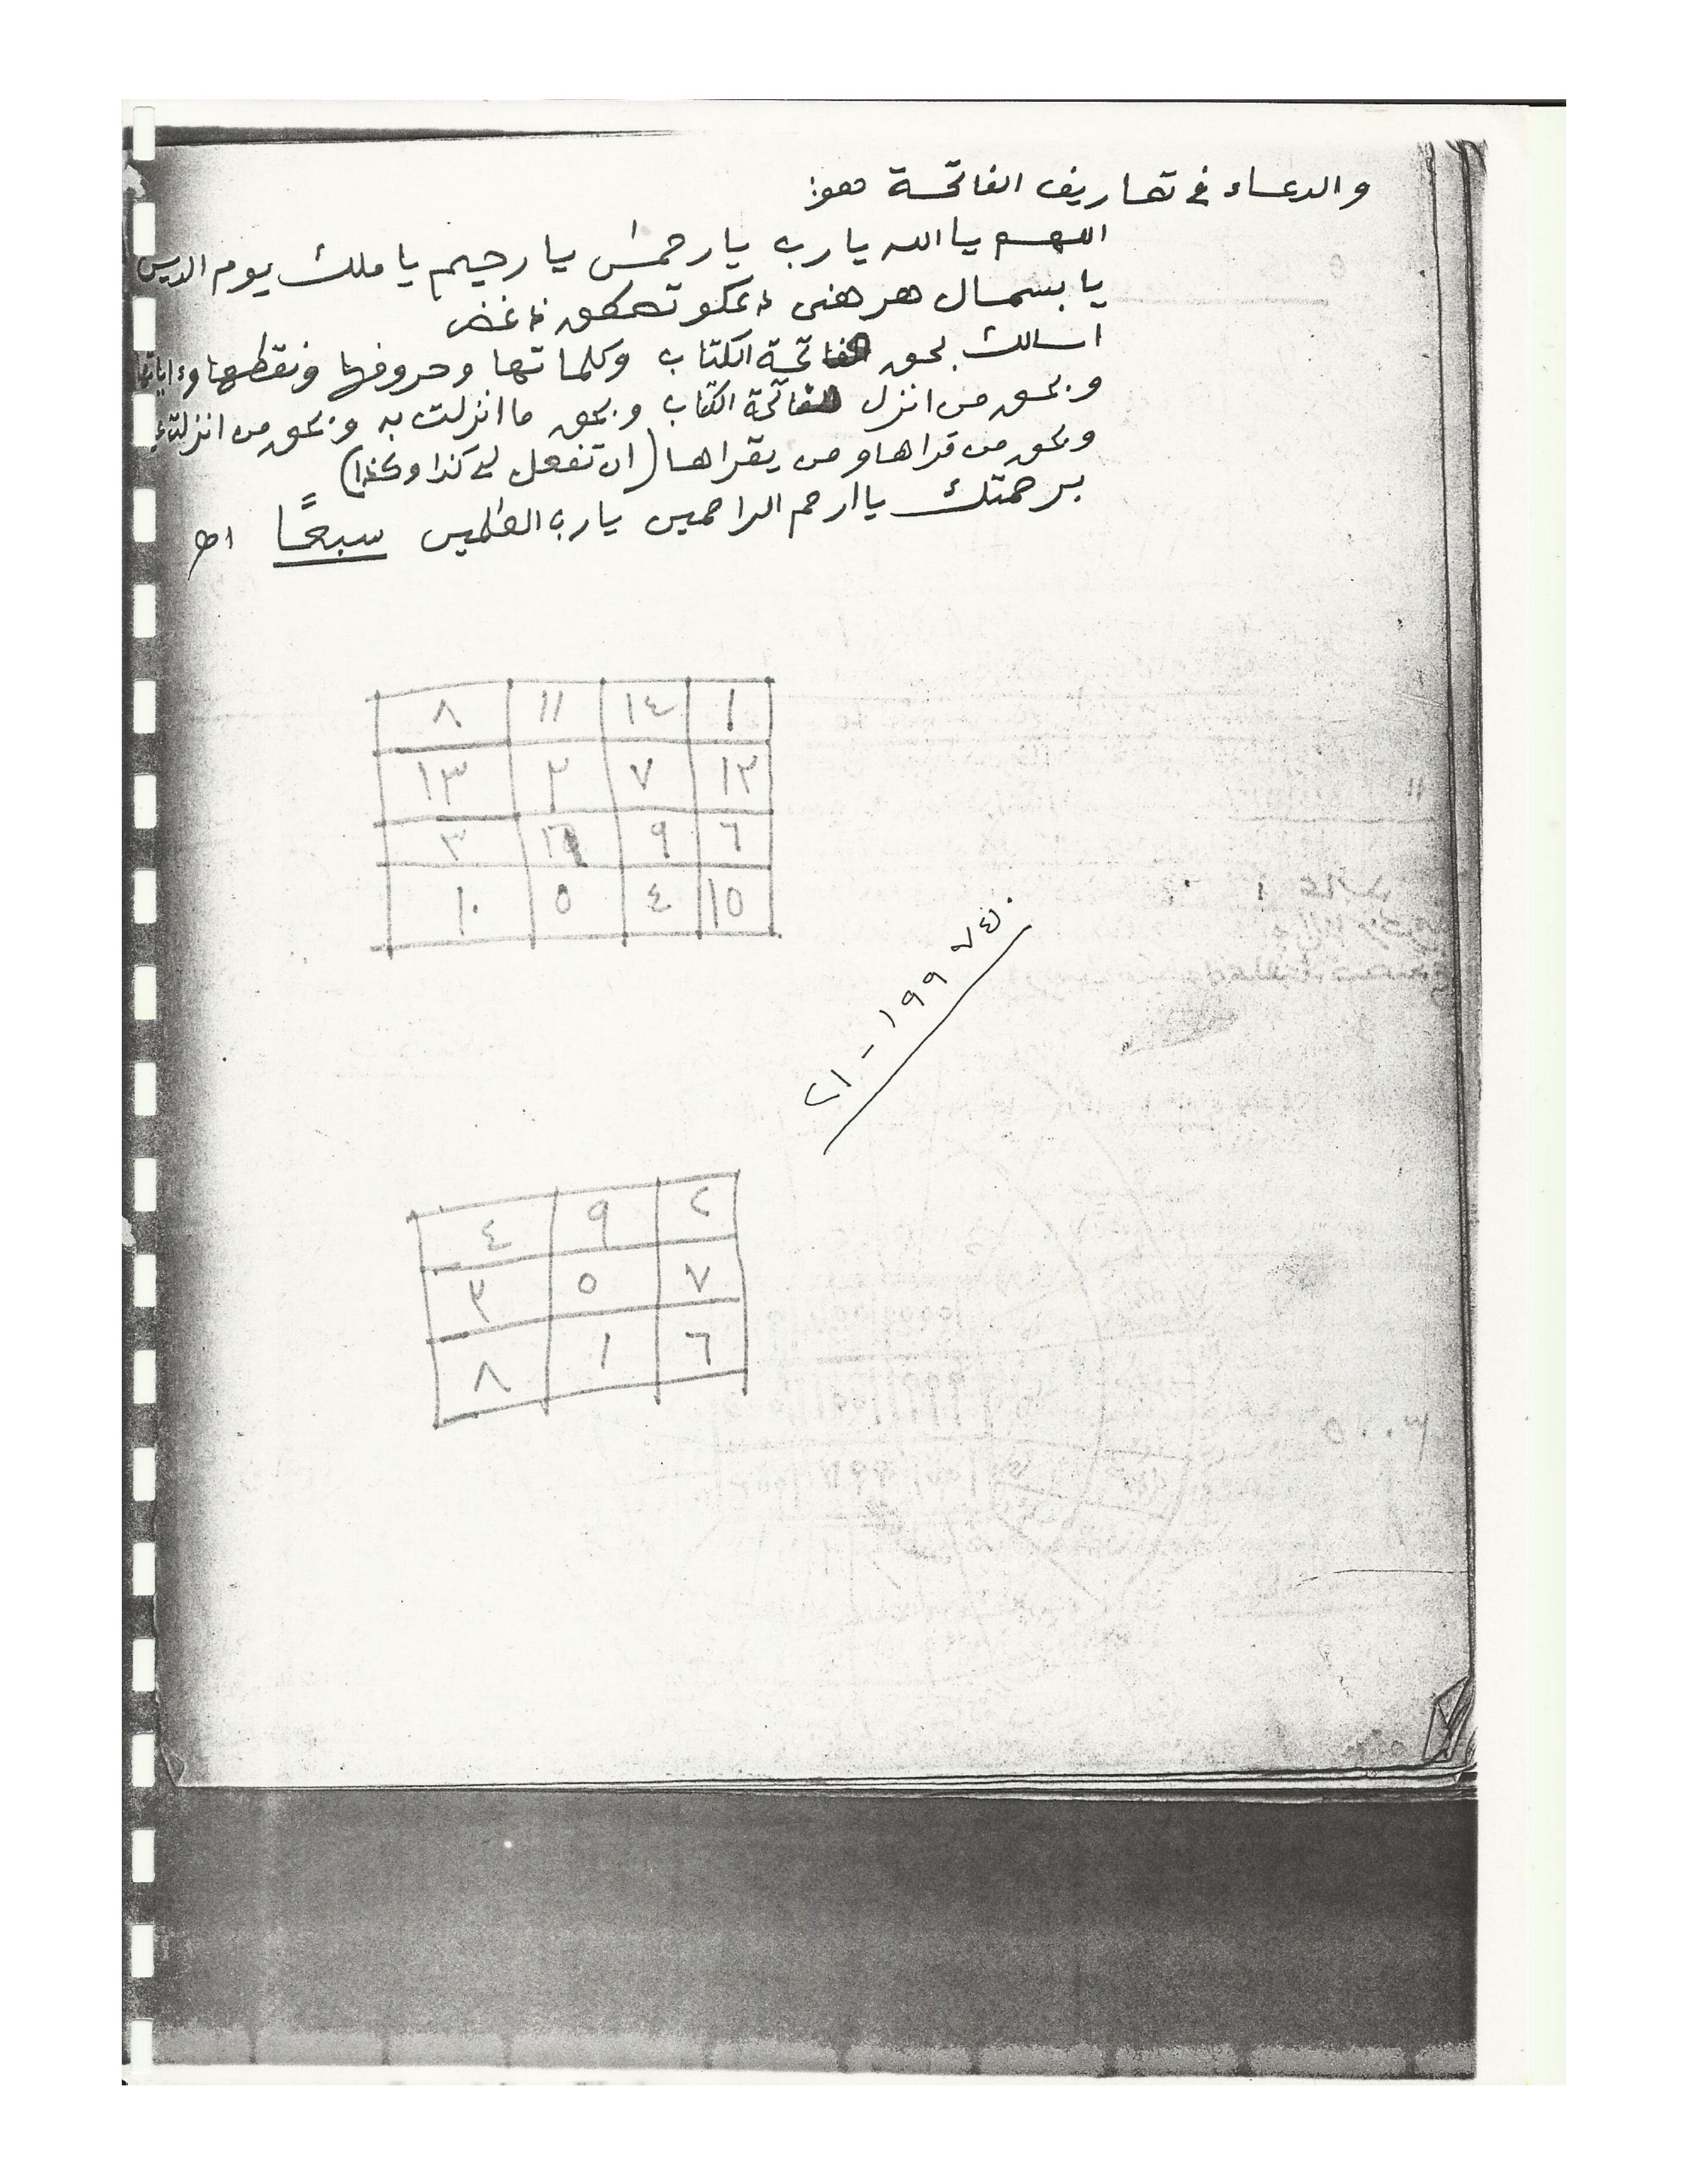 والدعاء في تصاريف الفاتحة هو:
اللهم يا الله يا رب يا رحمٰن يا رحيم يا ملك يوم الدين
يا بسمال
اسالك بحق فاتحة الكتاب وكلماتها وحروفها ونقطها وءاياتها
وبحق من انزل فاتحة الكتاب وبحق ما انزلت به وبحق من انزلت
وبحق من قراها ومن يقراها (ان تفعل لي كذا وكذا)
برحمتك يا ارحم الراحمين يا رب العلمين سبعًا اهـ
١ ١٤ ١١ ٨
١٢ ٧ ٢ ١٣
٦ ٩ ٣
١٥ ٤ ٥ ١٠
٢١ - ١٩٩
٢ ٩ ٤
٧ ٥ ٣
٦ ١ ٨